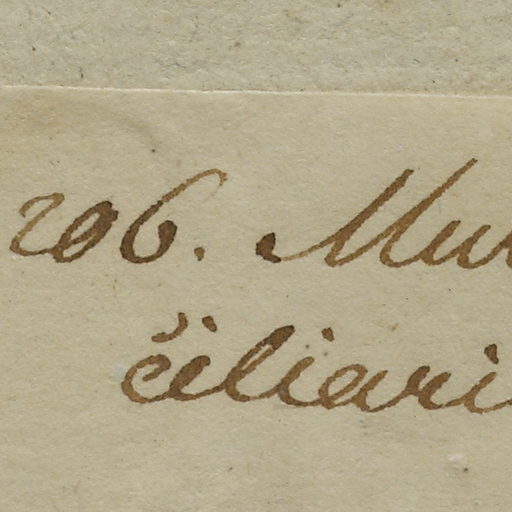 206. Mur
ciliari